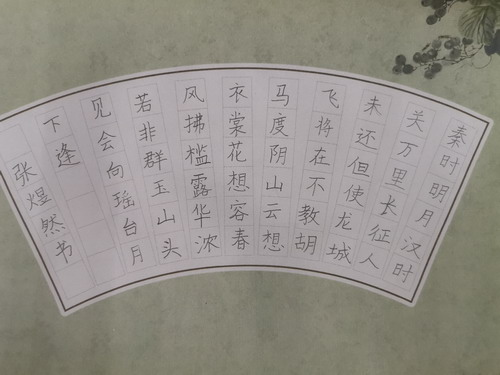 秦时明月汉时
关万里长征人
未还但使龙城
飞将在不教胡
马度阴山云想
衣裳花想容春
风拂槛露华浓
若非群玉山头
见会向瑶台月
下逢
张煜然书